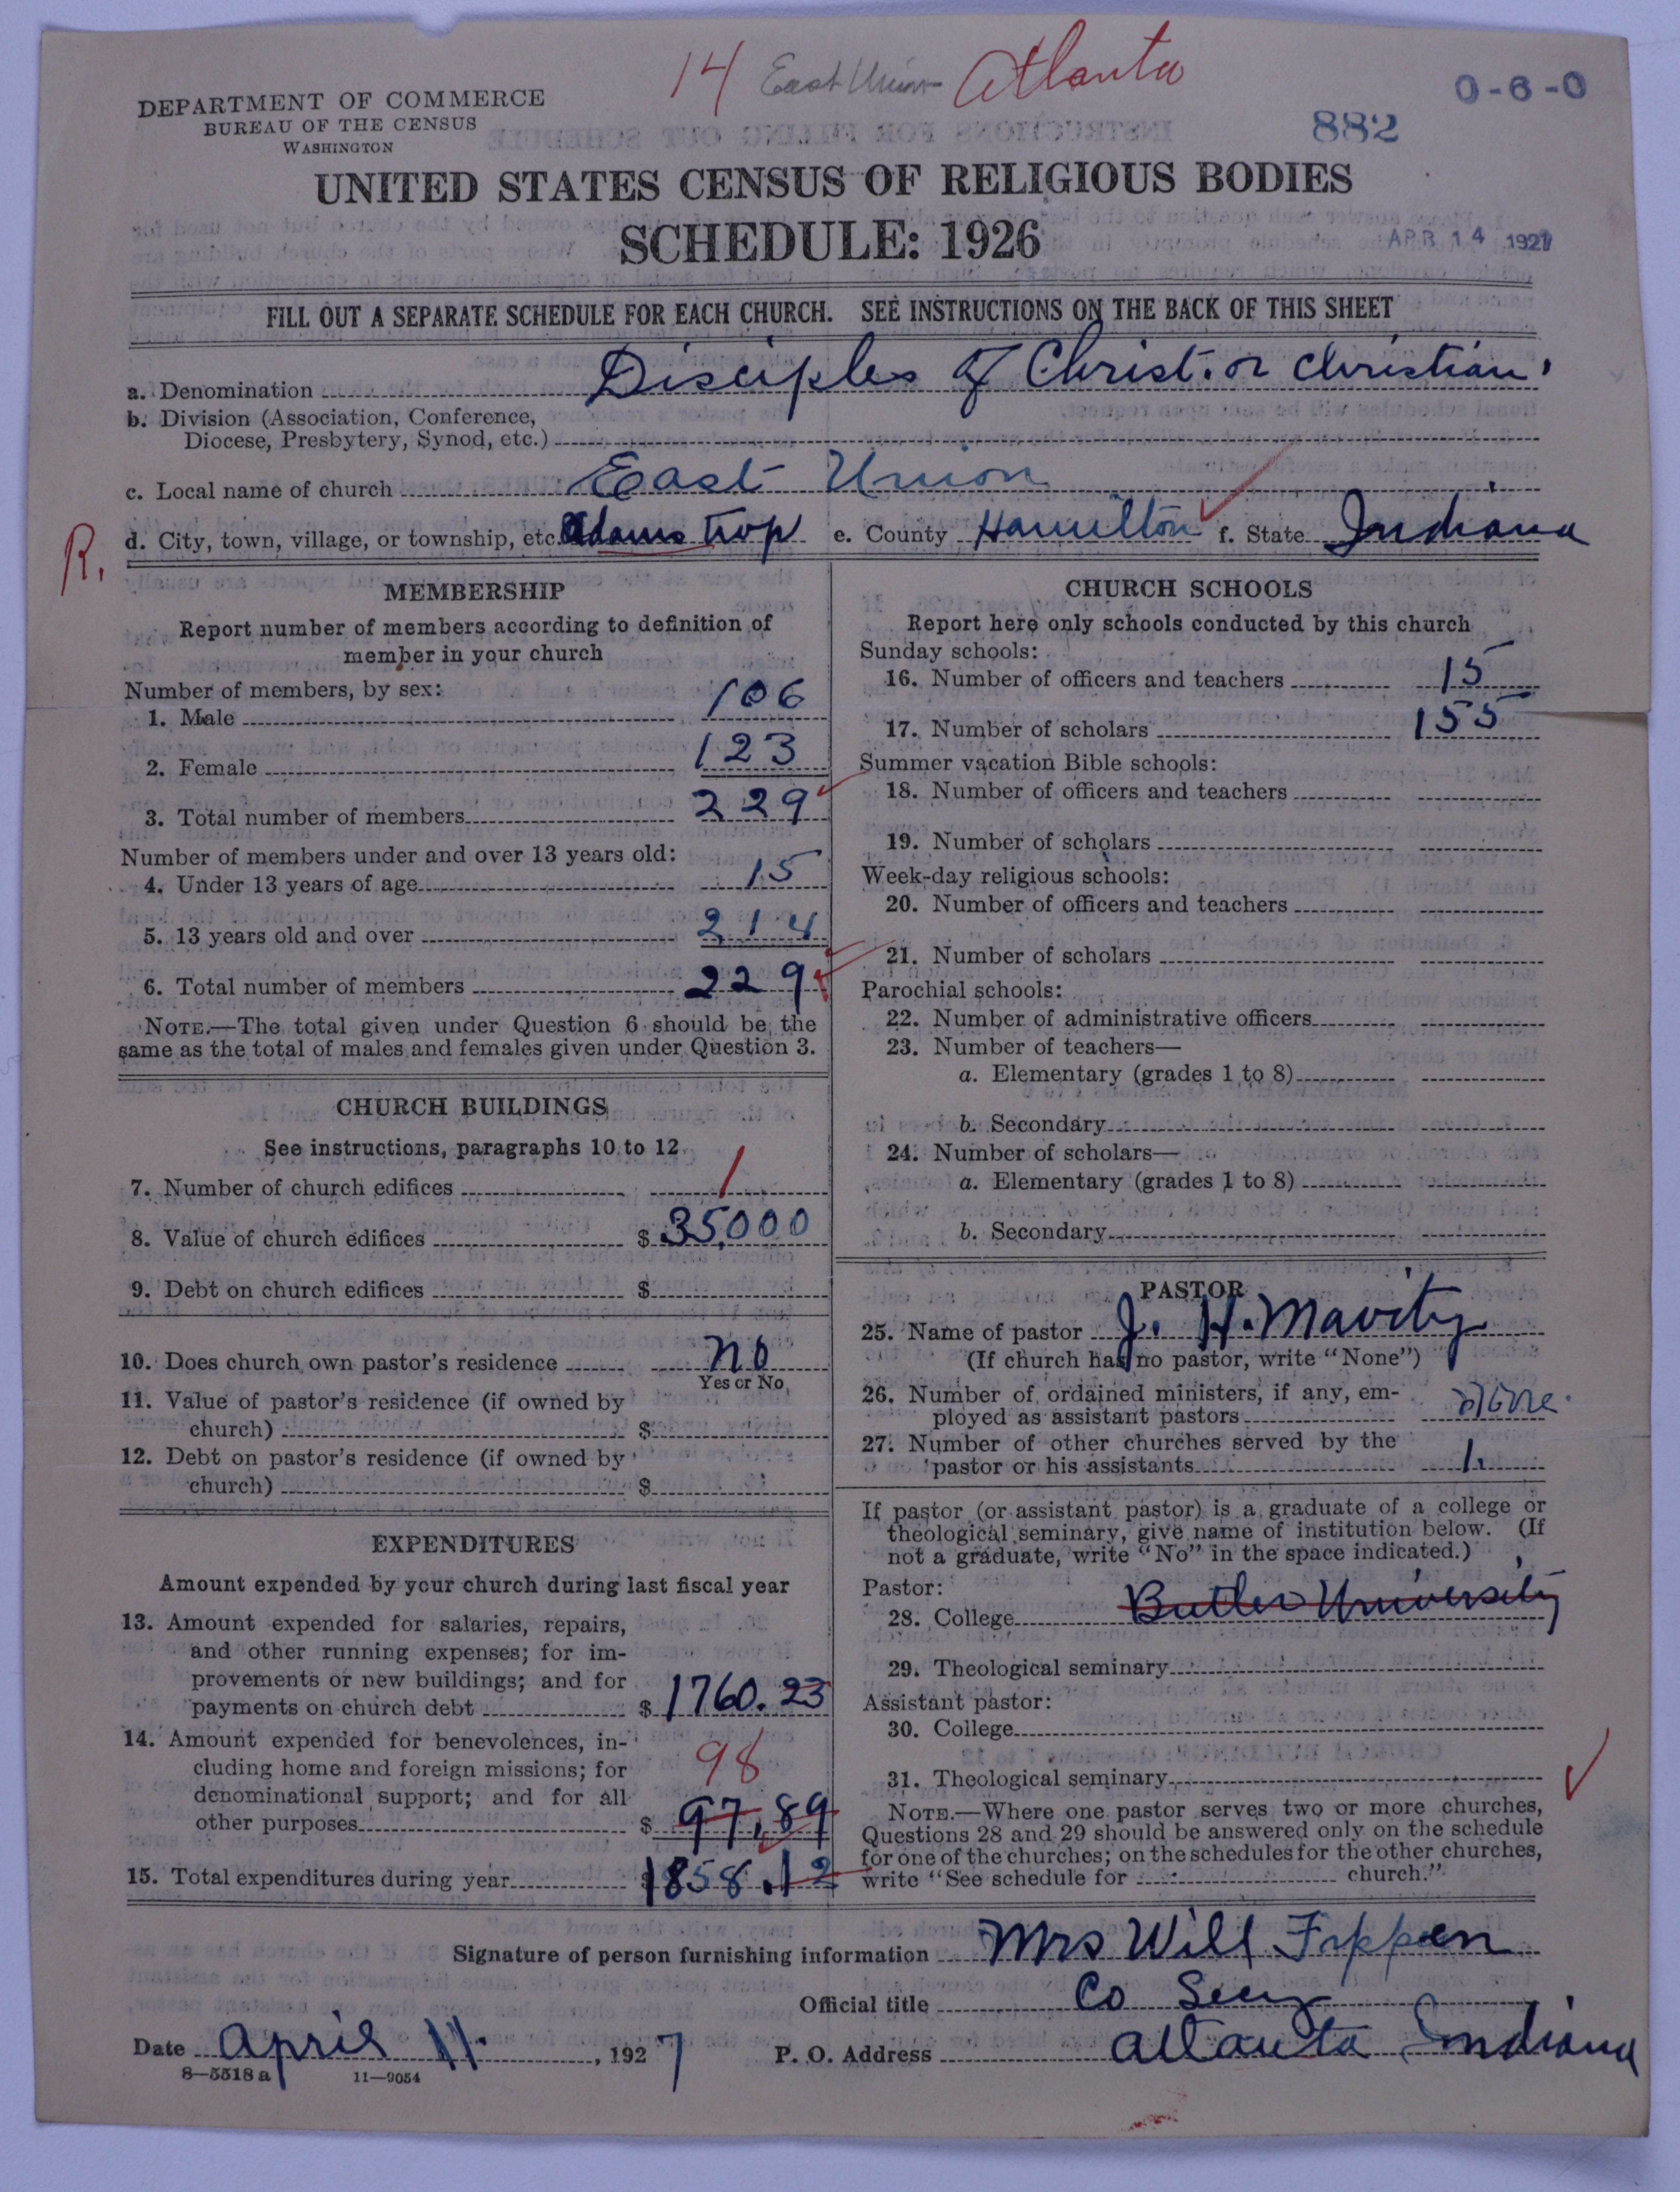 14 East Union Atlanta
0-6-0
DEPARTMENT OF COMMERCE
BUREAU OF THE CENSUS
WASHINGTON
882
UNITED STATES CENSUS OF RELIGIOUS BODIES
SCHEDULE: 1926
APR 14 1927
FILL OUT A SEPARATE SCHEDULE FOR EACH CHURCH. SEE INSTRUCTIONS ON THE BACK OF THIS SHEET
a. Denomination Disciples of Christ. or Christian.
b. Division (Association, Conference,
Diocese, Presbytery, Synod, etc.)
c. Local name of church East Union
R.
d. City, town, village, or township, etc. Adams twp e. County Hamilton f. State Indiana
MEMBERSHIP
Report number of members according to definition of
member in your church
Number of members, by sex:
1. Male 106
2. Female 123
3. Total number of members 229
Number of members under and over 13 years old:
4. Under 13 years of age 15
5. 13 years old and over 214
6. Total number of members 229
NOTE.—The total given under Question 6 should be the
same as the total of males and females given under Question 3.
CHURCH BUILDINGS
See instructions, paragraphs 10 to 12
7. Number of church edifices 1
8. Value of church edifices $ 35,000
9. Debt on church edifices $
10. Does church own pastor's residence no
Yes or No
11. Value of pastor's residence (if owned by
church) $
12. Debt on pastor's residence (if owned by
church) $
EXPENDITURES
Amount expended by your church during last fiscal year
13. Amount expended for salaries, repairs,
and other running expenses; for im-
provements or new buildings; and for
payments on church debt $ 1760.23
14. Amount expended for benevolences, in-
cluding home and foreign missions; for 98
denominational support; and for all
other purposes $ 97,89
15. Total expenditures during year $ 1858.12
CHURCH SCHOOLS
Report here only schools conducted by this church
Sunday schools:
16. Number of officers and teachers 15
17. Number of scholars 155
Summer vacation Bible schools:
18. Number of officers and teachers
19. Number of scholars
Week-day religious schools:
20. Number of officers and teachers
21. Number of scholars
Parochial schools:
22. Number of administrative officers
23. Number of teachers—
a. Elementary (grades 1 to 8)
b. Secondary
24. Number of scholars—
a. Elementary (grades 1 to 8)
b. Secondary
PASTOR
25. Name of pastor J. H. Mavity
(If church has no pastor, write "None")
26. Number of ordained ministers, if any, em-
ployed as assistant pastors None.
27. Number of other churches served by the
pastor or his assistants 1.
If pastor (or assistant pastor) is a graduate of a college or
theological seminary, give name of institution below. (If
not a graduate, write "No" in the space indicated.)
Pastor:
28. College Butler University
29. Theological seminary
Assistant pastor:
30. College
31. Theological seminary
NOTE.—Where one pastor serves two or more churches,
Questions 28 and 29 should be answered only on the schedule
for one of the churches; on the schedules for the other churches,
write "See schedule for church."
Signature of person furnishing information Mrs Will
Official title Co Secy
Date April 11. , 1927 P. O. Address Atlanta Indiana
8—5518 a 11—9054